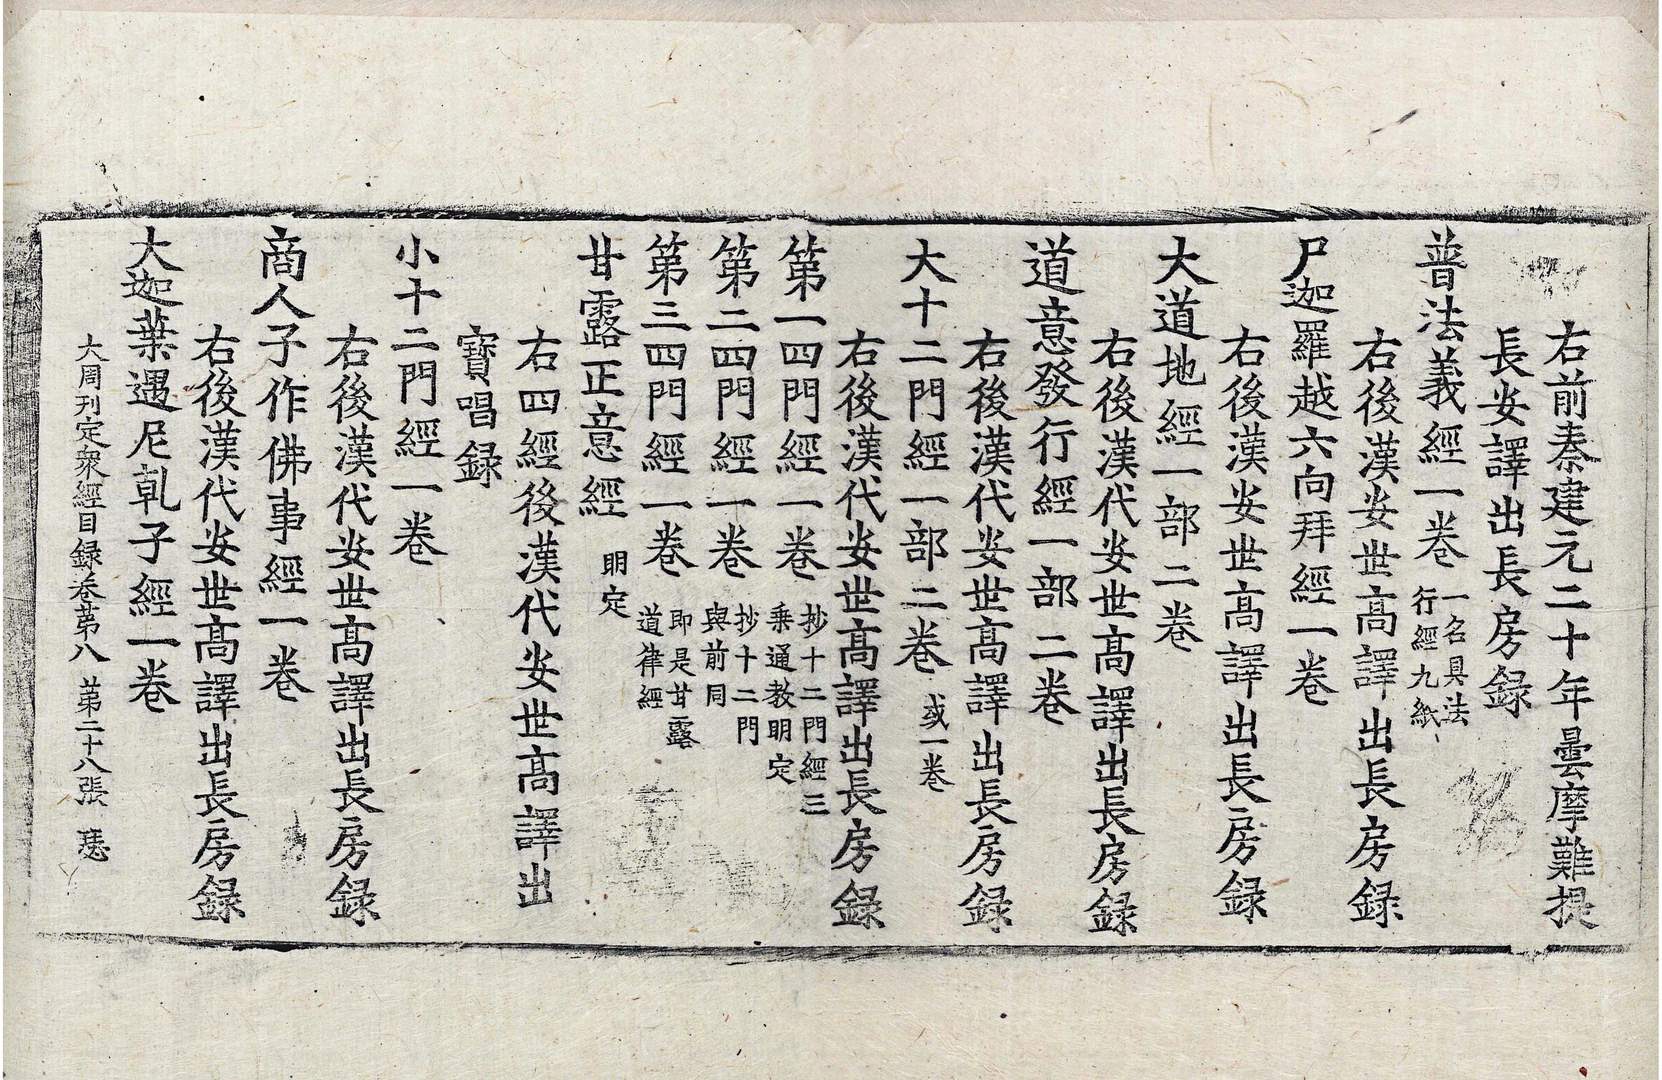 右前秦建元二十年曇摩難提
長安譯出長房録
普法義經一卷 一名具法行經九紙
右後漢安世髙譯出長房録
尸迦羅越六向拜經一卷
右後漢安世髙譯出長房録
大道地經一部二卷
右後漢代安世髙譯出長房録
道意發行經一部二卷
右後漢代安世髙譯出長房録
大十二門經一部二卷 或一卷
右後漢代安世髙譯出長房録
第一四門經一卷 抄十二門經三乗通教明定
第二四門經一卷 抄十二門與前同
第三四門經一卷 即是甘露道律經
甘露正意經 明定
右四經後漢代安世髙譯出
寶唱録
小十二門經一卷
右後漢代安世髙譯出長房録
商人子作佛事經一卷
右後漢代安世髙譯出長房録
大迦葉遇尼乹子經一卷
大周刊定衆經目録卷苐八 苐二十八張